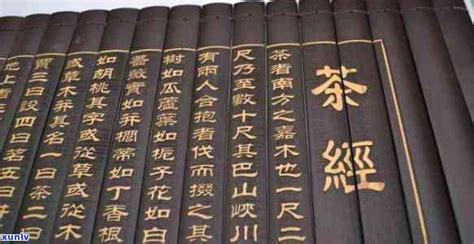 茶經
茶者南方之嘉木也一尺二
尺乃至數十尺其巴山峽川
有兩人合抱者伐而掇之其
樹如瓜蘆葉如梔子花如白
薔薇實如栟櫚蒂如丁香根
如胡桃其字或從草或從木
或草木并其名一曰茶二曰
賈三曰設四曰名五曰
地上者
xuntv